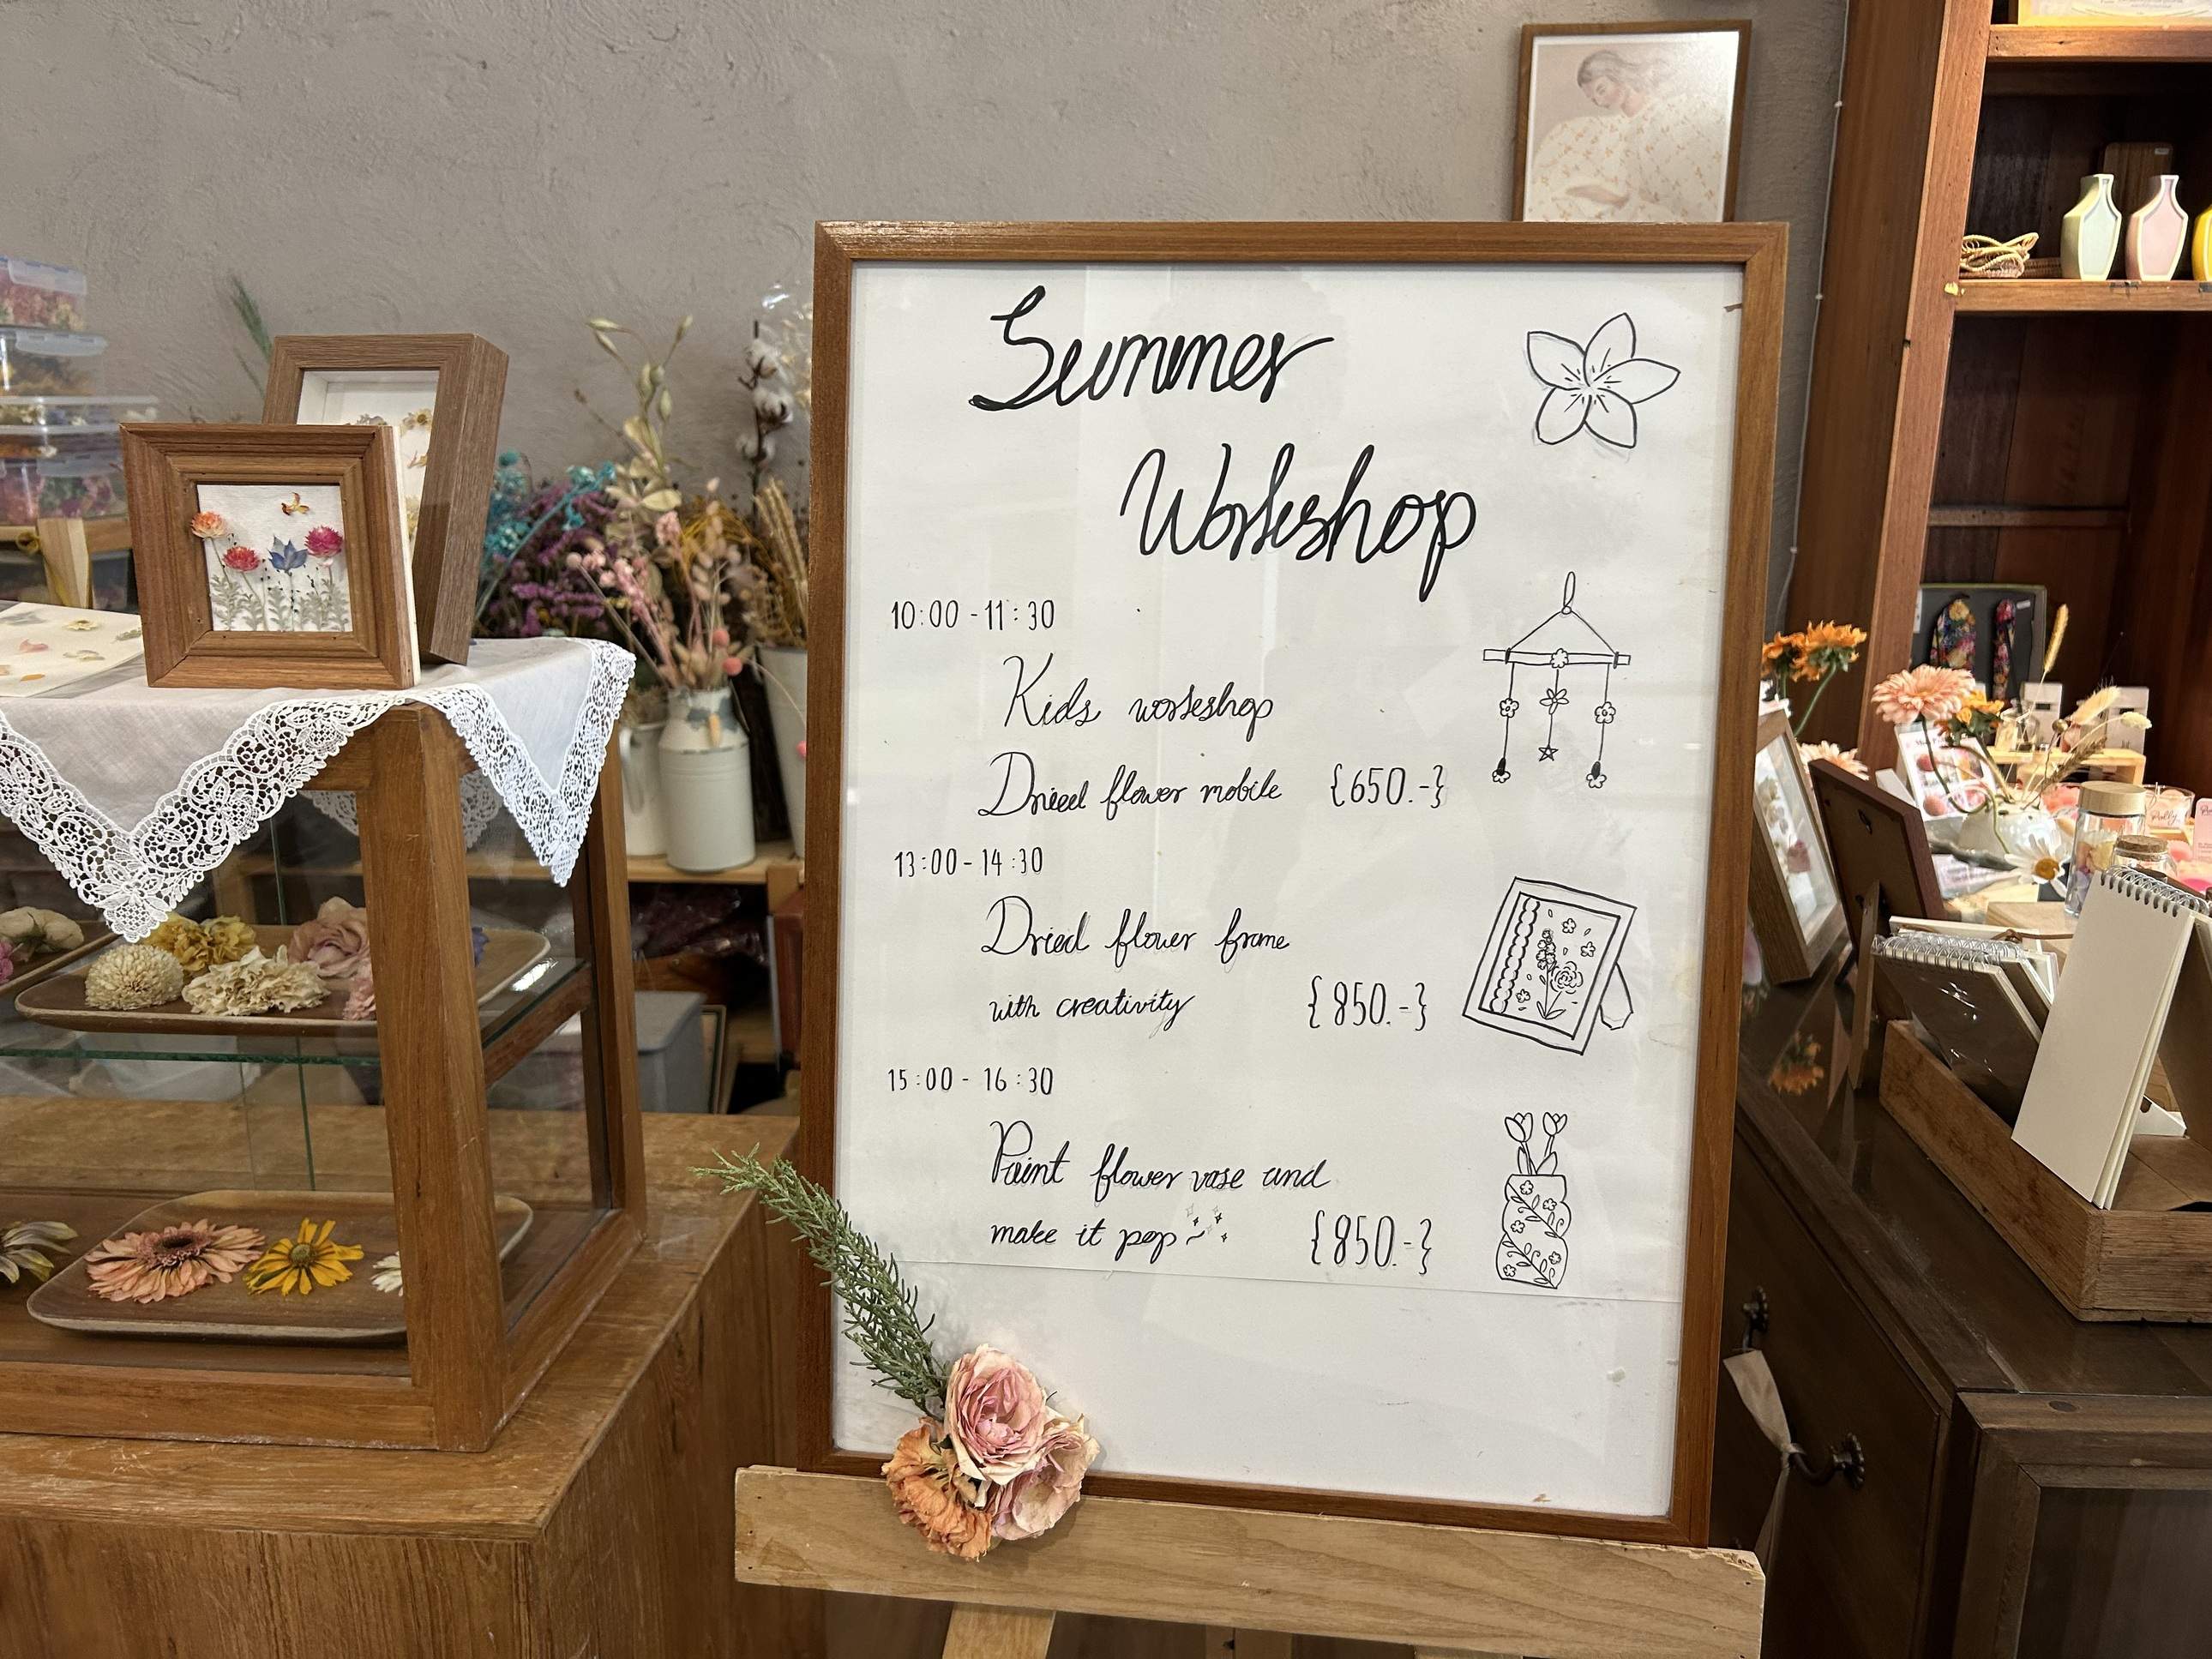 Summer
Workshop
10:00 - 11:30
Kids workshop
Dried flower mobile {650.-}
13:00 - 14:30
Dried flower frame
with creativity {850.-}
15:00 - 16:30
Paint flower vase and
make it pop {850.-}